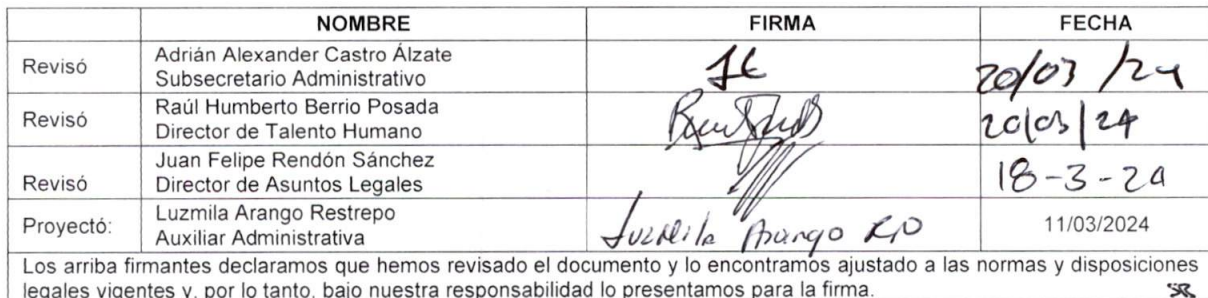 NOMBRE FIRMA FECHA
Revisó Adrián Alexander Castro Álzate
Subsecretario Administrativo 20/03/24
Revisó Raúl Humberto Berrio Posada
Director de Talento Humano 20/03/24
Juan Felipe Rendón Sánchez
Revisó Director de Asuntos Legales 18-3-24
Proyectó: Luzmila Arango Restrepo
Auxiliar Administrativa Luzmila Arango 11/03/2024
Los arriba firmantes declaramos que hemos revisado el documento y lo encontramos ajustado a las normas y disposiciones
legales vigentes y, por lo tanto, bajo nuestra responsabilidad lo presentamos para la firma.